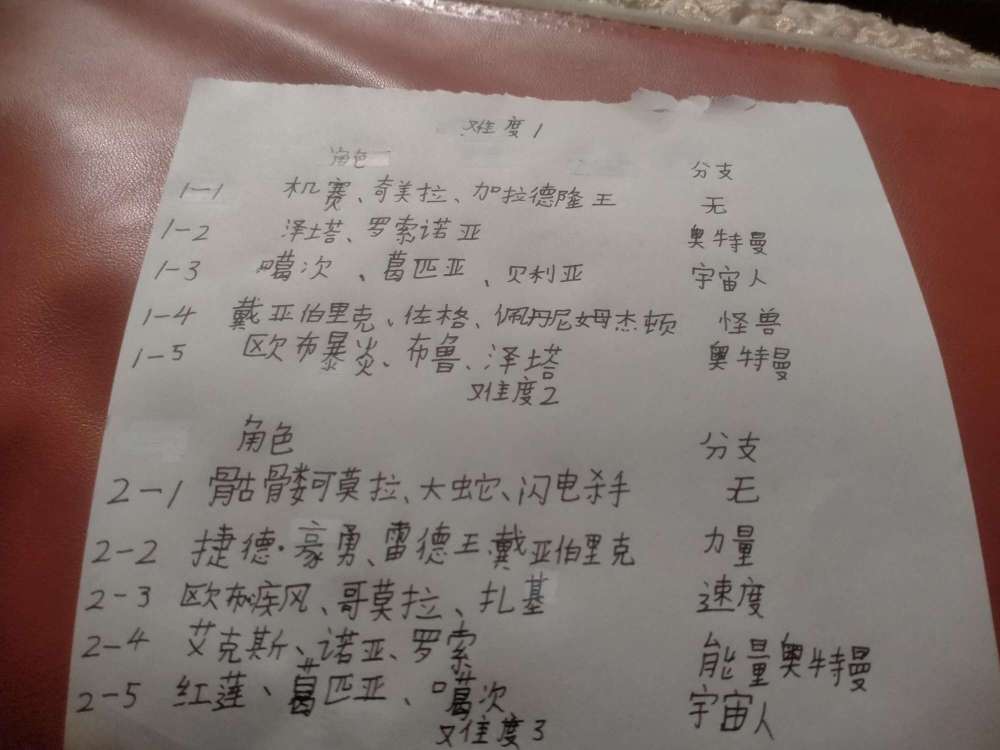 难度1
角色 分支
1-1 机赛、奇美拉、加拉德隆王 无
1-2 泽塔、罗索诺亚 奥特曼
1-3 噶次、葛匹亚、贝利亚 宇宙人
1-4 戴亚伯里克、佐格、佩丹尼姆杰顿 怪兽
1-5 欧布暴炎、布鲁、泽塔 奥特曼
难度2
角色 分支
2-1 骷髅哥莫拉、大蛇、闪电杀手 无
2-2 捷德·豪勇、雷德王、戴亚伯里克 力量
2-3 欧布疾风、哥莫拉、扎基 速度
2-4 艾克斯、诺亚、罗索 能量奥特曼
2-5 红莲、葛匹亚、噶次 宇宙人
难度3